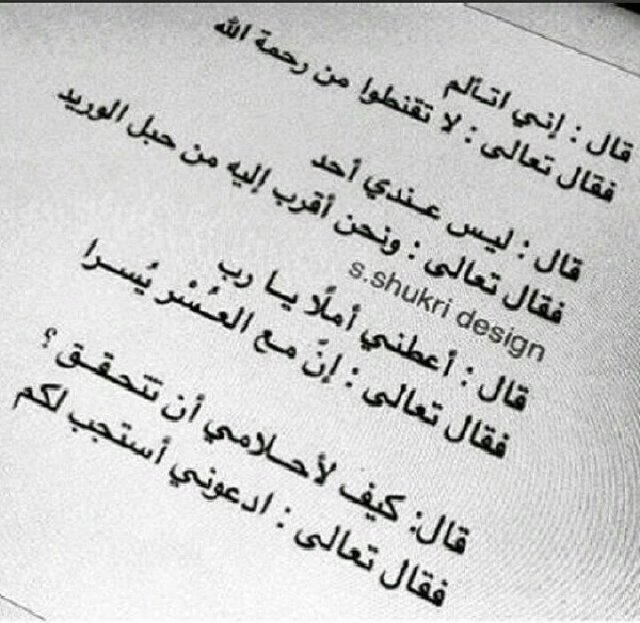 قال : إني اتألم
فقال تعالى : لا تقنطوا من رحمة الله
قال : ليس عندي أحد
فقال تعالى : ونحن أقرب إليه من حبل الوريد
s.shukri design
قال : أعطني أملًا يا رب
فقال تعالى : إنّ مع العُسْر يُسرا
قال: كيف لأحلامي أن تتحقق ؟
فقال تعالى : ادعوني أستجب لكم